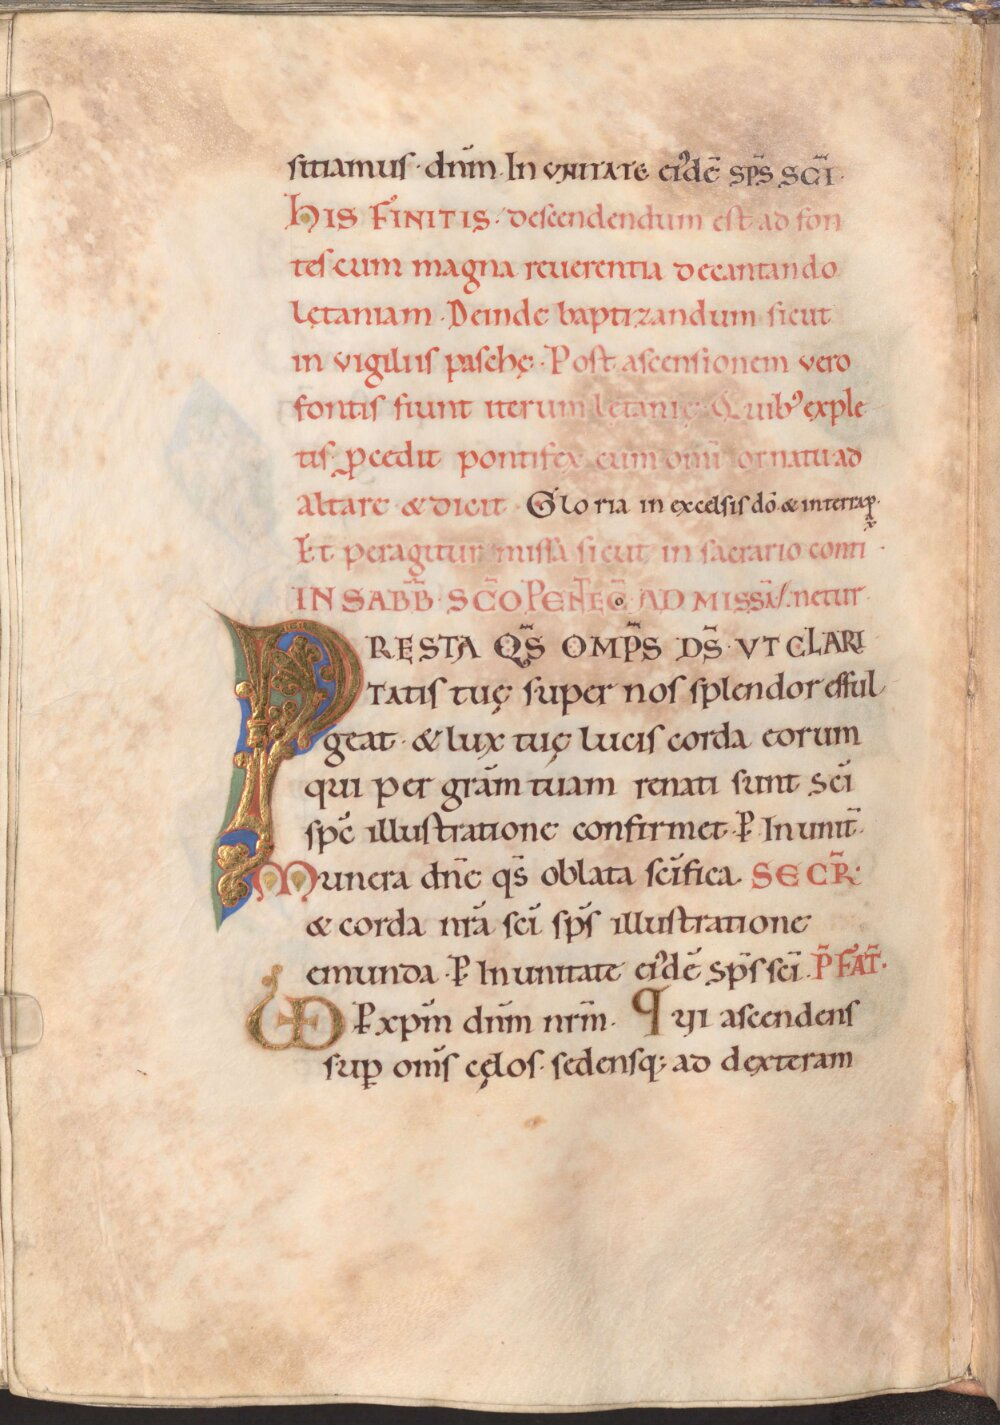 sitiamus · dn̄m · In VNITATE ei'dē SP̄S SC̄I ·
HIS FINITIS · descendendum est ad fon
tes cum magna reuerentia decantando
lętaniam · Deinde baptizandum sicut
in vigiliis paschę · Post ascensionem vero
fontis fiunt iterum lętanię · Quib' exple
tis p̱cedit pontifex cum om̄i ornatu ad
Altare & dicit · Gloria in excelsis dō & interrap̄ ·
Et peragitur missa sicut in sacrario conti ·
IN SABB̄ · SC̄O PENTEC̄ · AD MISSĀ / netur ·
PRESTA QS̄ OMP̄S DS̄ · VT CLARI
TATIS tuę super nos splendor efful
geat · & lux tuę lucis corda eorum
qui per grām tuam renati sunt sc̄i
spc̄ illustratione confirmet · P̄ In unit̄ ·
Munera dn̄e qs̄ oblata sc̄ifica · SECR̄ ·
& corda nrā sc̄i sp̄s illustratione
emunda · P̄ In unitate ei'dē SP̄S sc̄i · P̄FAT̄ ·
VD P̄ xp̄m dn̄m nrm̄ · Qui ascendens
sup̱ om̄s cęlos · sedensq; ad dexteram